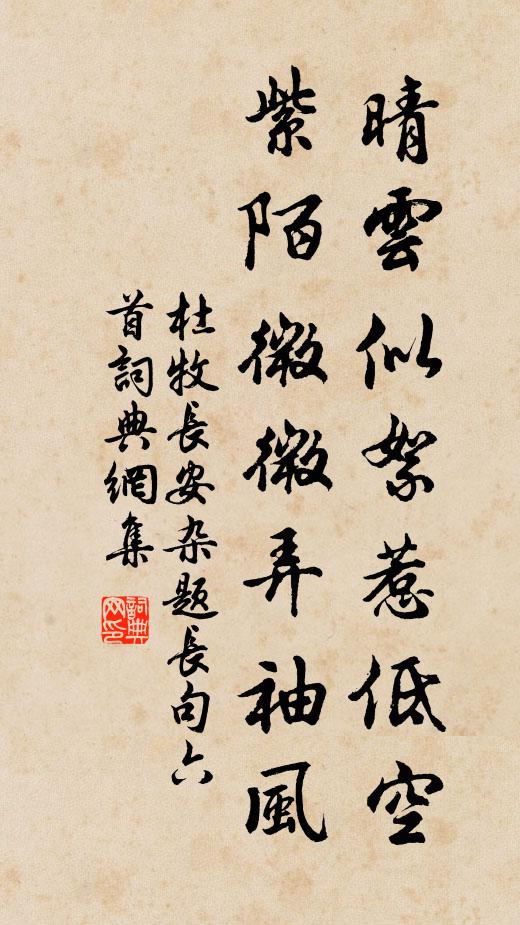 晴雲似絮惹低空
紫陌微微弄袖風
杜牧長安杂題長句六
首詞典網集
詞典
网印